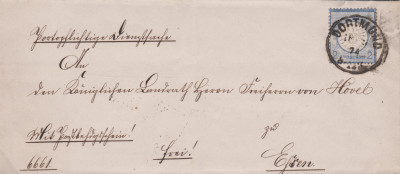 Portopflichtige Dienstsache
DORTMUND
An
den Königlichen Landrath Herrn Freiherrn von Hövel
Mit Postbehändigschein!
zu
6661
frei!
Essen.